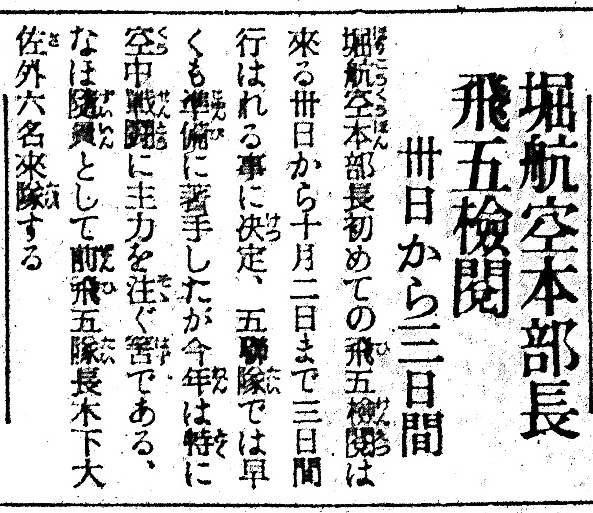 堀航空本部長
飛五檢閲
卅日から三日間
堀航空本部長初めての飛五檢閲は
來る卅日から十月二日まで三日間
行はれる事に決定、五聯隊では早
くも準備に著手したが今年は特に
空中戰鬪に主力を注ぐ筈である、
なほ隨員として前飛五隊長木下大
佐外六名來隊する